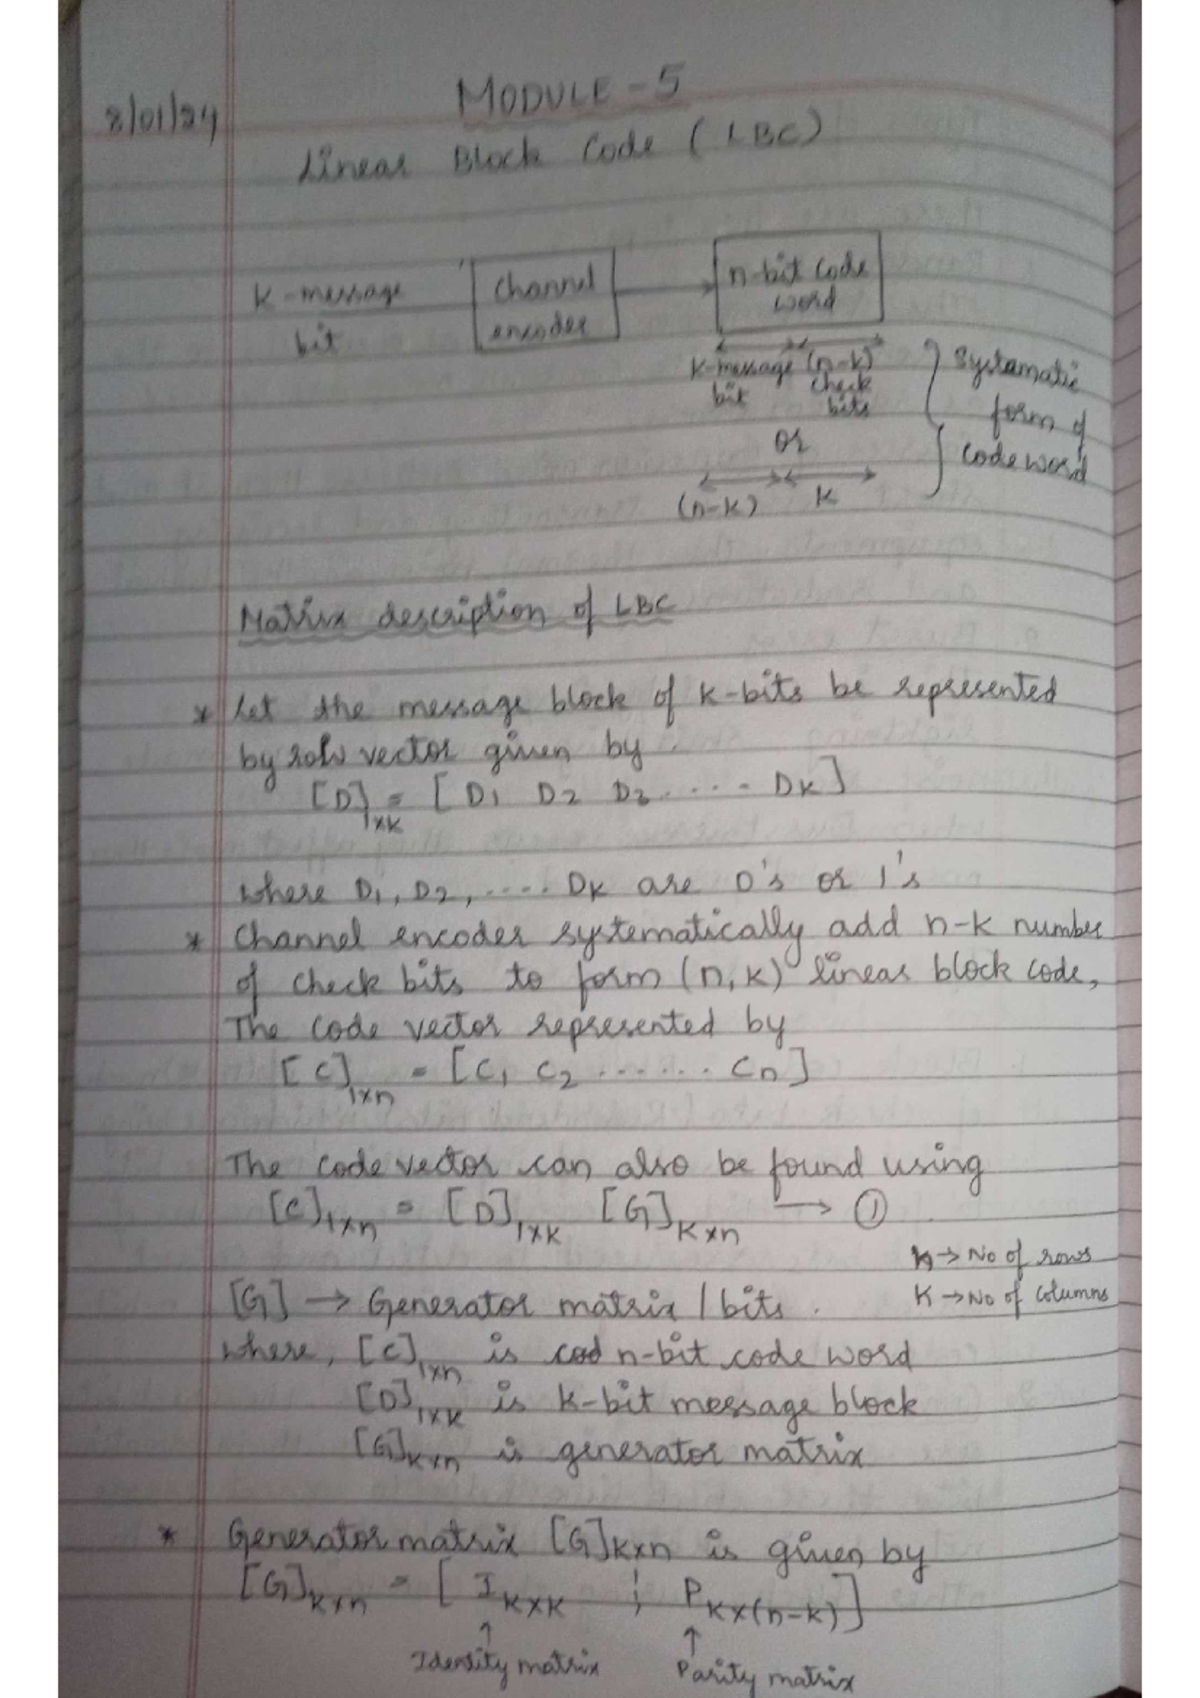 MODULE - 5
8/01/24
Linear Block Code (LBC)
K-message bit
Channel encoder
n-bit code word
K-message bit
(n-k) check bits
or
(n-k)
K
Systamatic form of codeword
Matrix description of LBC
* Let the message block of k-bits be represented
by row vector given by
[D]1xK = [ D1 D2 D3 ..... DK ]
where D1, D2, ..... DK are 0's or 1's
* Channel encoder systematically add n-k number
of check bits to form (n,k) linear block code,
The code vector represented by
[C]1xn = [C1 C2 ...... Cn]
The code vector can also be found using
[C]1xn = [D]1xK [G]Kxn → ①
→ No of rows
K → No of columns
[G] → Generator matrix / bits.
where, [C]1xn is n-bit code word
[D]1xK is k-bit message block
[G]Kxn is generator matrix
* Generator matrix [G]Kxn is given by
[G]Kxn = [ IKxK ¦ PKx(n-k) ]
↑ Identity matrix
↑ Parity matrix